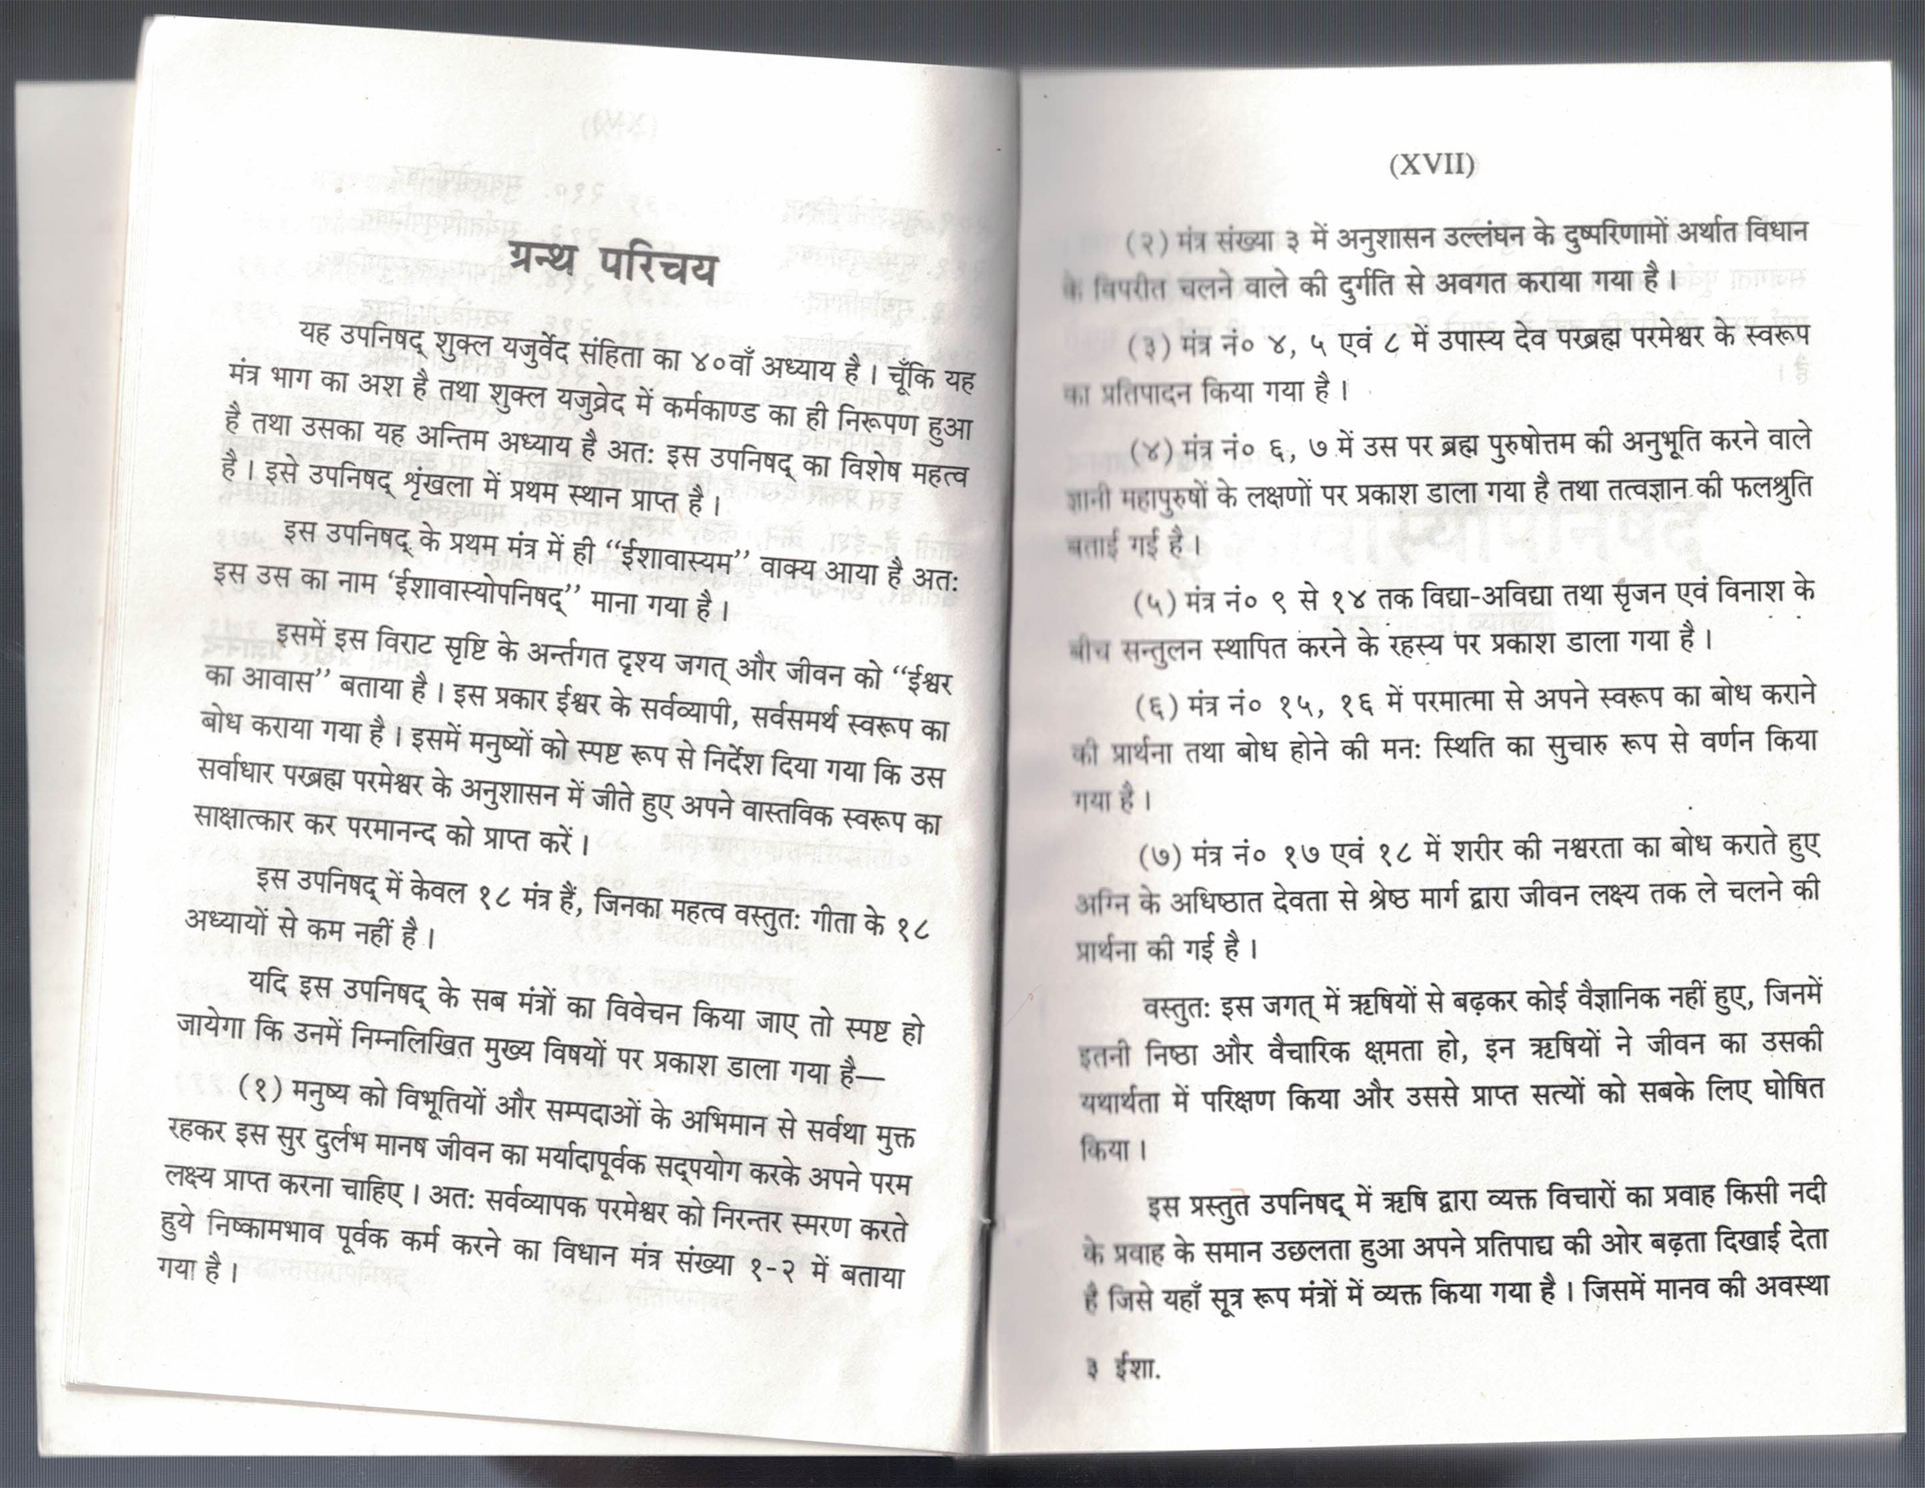 ग्रन्थ परिचय
यह उपनिषद् शुक्ल यजुर्वेद संहिता का ४०वाँ अध्याय है। चूँकि यह
मंत्र भाग का अश है तथा शुक्ल यजुव्रेद में कर्मकाण्ड का ही निरूपण हुआ
है तथा उसका यह अन्तिम अध्याय है अत: इस उपनिषद् का विशेष महत्व
है। इसे उपनिषद् शृंखला में प्रथम स्थान प्राप्त है।
इस उपनिषद् के प्रथम मंत्र में ही “ईशावास्यम” वाक्य आया है अत:
इस उस का नाम ‘ईशावास्योपनिषद्” माना गया है।
इसमें इस विराट सृष्टि के अर्न्तगत दृश्य जगत् और जीवन को “ईश्वर
का आवास” बताया है। इस प्रकार ईश्वर के सर्वव्यापी, सर्वसमर्थ स्वरूप का
बोध कराया गया है। इसमें मनुष्यों को स्पष्ट रूप से निर्देश दिया गया कि उस
सर्वाधार परब्रह्म परमेश्वर के अनुशासन में जीते हुए अपने वास्तविक स्वरूप का
साक्षात्कार कर परमानन्द को प्राप्त करें।
इस उपनिषद् में केवल १८ मंत्र हैं, जिनका महत्व वस्तुत: गीता के १८
अध्यायों से कम नहीं है।
यदि इस उपनिषद् के सब मंत्रों का विवेचन किया जाए तो स्पष्ट हो
जायेगा कि उनमें निम्नलिखित मुख्य विषयों पर प्रकाश डाला गया है—
(१) मनुष्य को विभूतियों और सम्पदाओं के अभिमान से सर्वथा मुक्त
रहकर इस सुर दुर्लभ मानष जीवन का मर्यादापूर्वक सद्पयोग करके अपने परम
लक्ष्य प्राप्त करना चाहिए। अत: सर्वव्यापक परमेश्वर को निरन्तर स्मरण करते
हुये निष्कामभाव पूर्वक कर्म करने का विधान मंत्र संख्या १-२ में बताया
गया है।
(XVII)
(२) मंत्र संख्या ३ में अनुशासन उल्लंघन के दुष्परिणामों अर्थात विधान
के विपरीत चलने वाले की दुर्गति से अवगत कराया गया है।
(३) मंत्र नं० ४, ५ एवं ८ में उपास्य देव परब्रह्म परमेश्वर के स्वरूप
का प्रतिपादन किया गया है।
(४) मंत्र नं० ६, ७ में उस पर ब्रह्म पुरुषोत्तम की अनुभूति करने वाले
ज्ञानी महापुरुषों के लक्षणों पर प्रकाश डाला गया है तथा तत्वज्ञान की फलश्रुति
बताई गई है।
(५) मंत्र नं० ९ से १४ तक विद्या-अविद्या तथा सृजन एवं विनाश के
बीच सन्तुलन स्थापित करने के रहस्य पर प्रकाश डाला गया है।
(६) मंत्र नं० १५, १६ में परमात्मा से अपने स्वरूप का बोध कराने
की प्रार्थना तथा बोध होने की मन: स्थिति का सुचारु रूप से वर्णन किया
गया है।
(७) मंत्र नं० १७ एवं १८ में शरीर की नश्वरता का बोध कराते हुए
अग्नि के अधिष्ठात देवता से श्रेष्ठ मार्ग द्वारा जीवन लक्ष्य तक ले चलने की
प्रार्थना की गई है।
वस्तुत: इस जगत् में ऋषियों से बढ़कर कोई वैज्ञानिक नहीं हुए, जिनमें
इतनी निष्ठा और वैचारिक क्षमता हो, इन ऋषियों ने जीवन का उसकी
यथार्थता में परिक्षण किया और उससे प्राप्त सत्यों को सबके लिए घोषित
किया।
इस प्रस्तुत उपनिषद् में ऋषि द्वारा व्यक्त विचारों का प्रवाह किसी नदी
के प्रवाह के समान उछलता हुआ अपने प्रतिपाद्य की ओर बढ़ता दिखाई देता
है जिसे यहाँ सूत्र रूप मंत्रों में व्यक्त किया गया है। जिसमें मानव की अवस्था
३ ईशा.